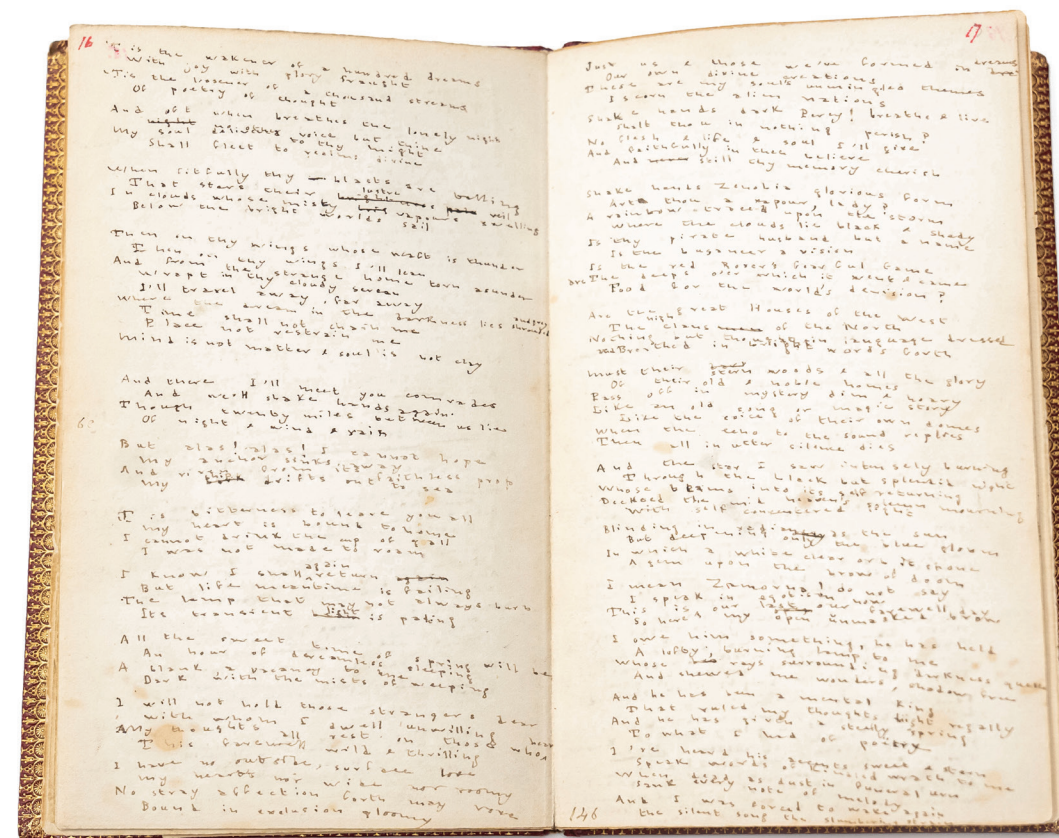 16
'T is the wakener of a hundred dreams
With joy with glory fraught
'Tis the loosener of a thousand streams
Of poetry of thought
And oft when breathes the lonely night
might voice but thine
My soul to thy might
Shall fleet to realms divine
When fitfully thy blasts are
That stars their lustre veil
In clouds whose misty vapours swelling
Below the bright worlds sail
Then on thy wings whose waft is thunder
Then on thy wings I'll lean
And from the strange home torn asunder
Wrapt in thy cloudy screen
I'll travel away, far away
Where the ocean in the darkness lies
Time shall not chain me
Place not restrain me
Mind is not matter & soul is not clay
And there I'll meet you comrades
And we'll shake hands again
Though twenty miles between us lies
Of night & wind & rain
But alas! alas! I cannot hope
My anchor sinks away
And from its faithless prop
My drifts out to sea
It is bitterness to leave you all
My heart is bound to home
I cannot drink the cup of gall
I was not made to roam
again
I know I shall return again
But life meantime is failing
The lamp that may not always burn
Its transient light is paling
All the sweet time of spring will be
An hour of dreamless sleeping
A blank a vacancy to me
Dark with the mists of weeping
I will not hold those strangers dear
With whom I dwell unwilling
My thoughts all rest on those who
This farewell wild & thrilling
I have no outside, surface love
My heart's nor wide nor roomy
No stray affection forth may rove
Bound in exclusion gloomy
17
Just us & those we've formed in dreams
Our own divine creations
These are my soul's unmingled themes
I scorn the alien nations
Shake hands dark Percy! breathe & live
Shalt thou in nothing perish?
No flesh & life & soul I'll give
And faithfully in thee believe
And still thy memory cherish
Shake hands Zenobia glorious form
Art thou a vapour, lady?
A rainbow traced upon the storm
Where the clouds lie black & shady
Is thy pirate husband but a name
Is the bucaneer a vision
Is the red Rover's fearful fame
The deeps o'er which it went & came
Food for the world's derision?
Are the great Houses of the West
The high clans of the North
Nothing but thoughts in language dressed
Breathed in bright words forth
Must their woods & all the glory
Of their old & noble homes
Pass off in mystery dim & hoary
Like an old song or magic story
Like the coins of their own domes
When the echo to the sound replies
Then all in utter silence dies
And the star I saw intensely burning
Through the black but splendid night
Whose beams into its self returning
Decked the mid heavens
With self concentered light
Blinding in radiancy as the sun
But deepening the blue gloom
In which a white clear orb it shone
A gem upon the brow of doom
I mean Zamorna! do not say
I speak in egotism now
This is our last our farewell day
So here's my open unmasked brow
I owe him something, he has held
A lofty, burning lamp to me
Whose rays surrounding darkness quelled
And shewed me wonders, shadow free
And he has been a mental King
That ruled my thoughts right regally
And he has given a steady spring
To what I had of poetry
I've heard his accents sweet & stern
Speak words of kindled wrath to me
When dead as dust in funeral urn
Sank every note of melody
And I was forced to wake again
the silent song the slumbering
146